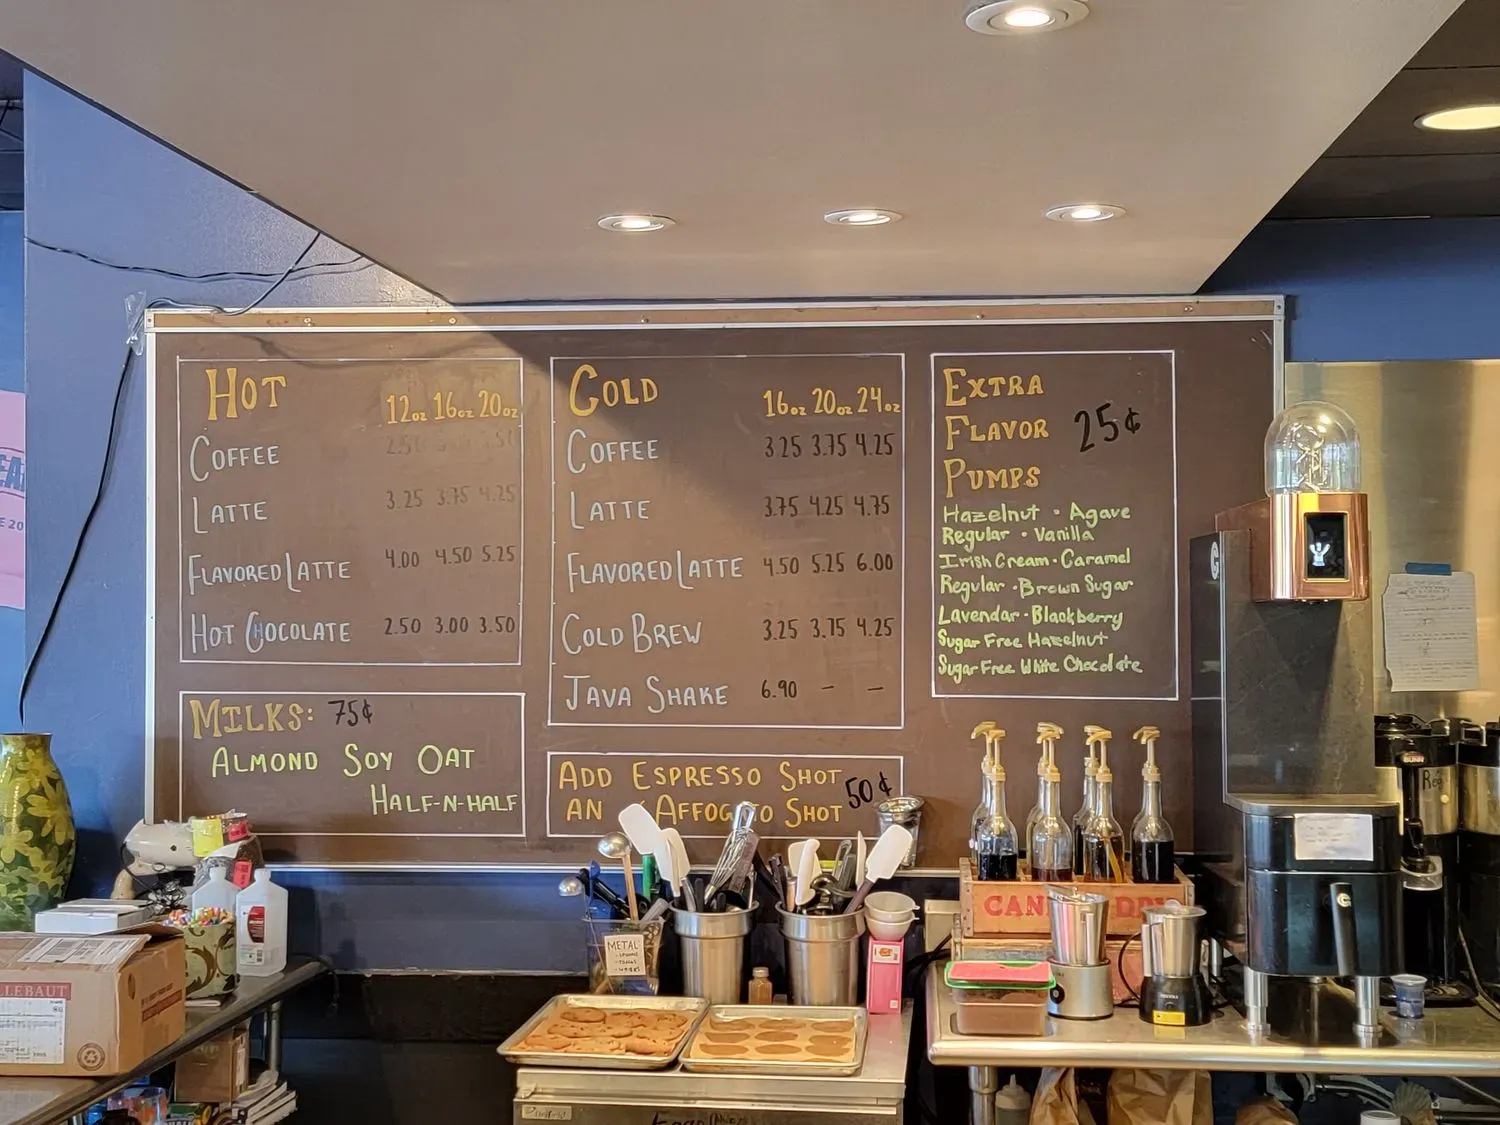 HOT 12oz 16oz 20oz
COFFEE
LATTE 3.25 3.75 4.25
FLAVORED LATTE 4.00 4.50 5.25
HOT CHOCOLATE 2.50 3.00 3.50
MILKS: 75¢
ALMOND SOY OAT
HALF-N-HALF
COLD 16oz 20oz 24oz
COFFEE 3.25 3.75 4.25
LATTE 3.75 4.25 4.75
FLAVORED LATTE 4.50 5.25 6.00
COLD BREW 3.25 3.75 4.25
JAVA SHAKE 6.90 – –
ADD ESPRESSO SHOT 50¢
AN AFFOGATO SHOT
EXTRA
FLAVOR 25¢
PUMPS
Hazelnut · Agave
Regular · Vanilla
Irish Cream · Caramel
Regular · Brown Sugar
Lavendar · Blackberry
Sugar Free Hazelnut
Sugar Free White Chocolate
METAL
CAN DRY
BUNN
LLEBAUT